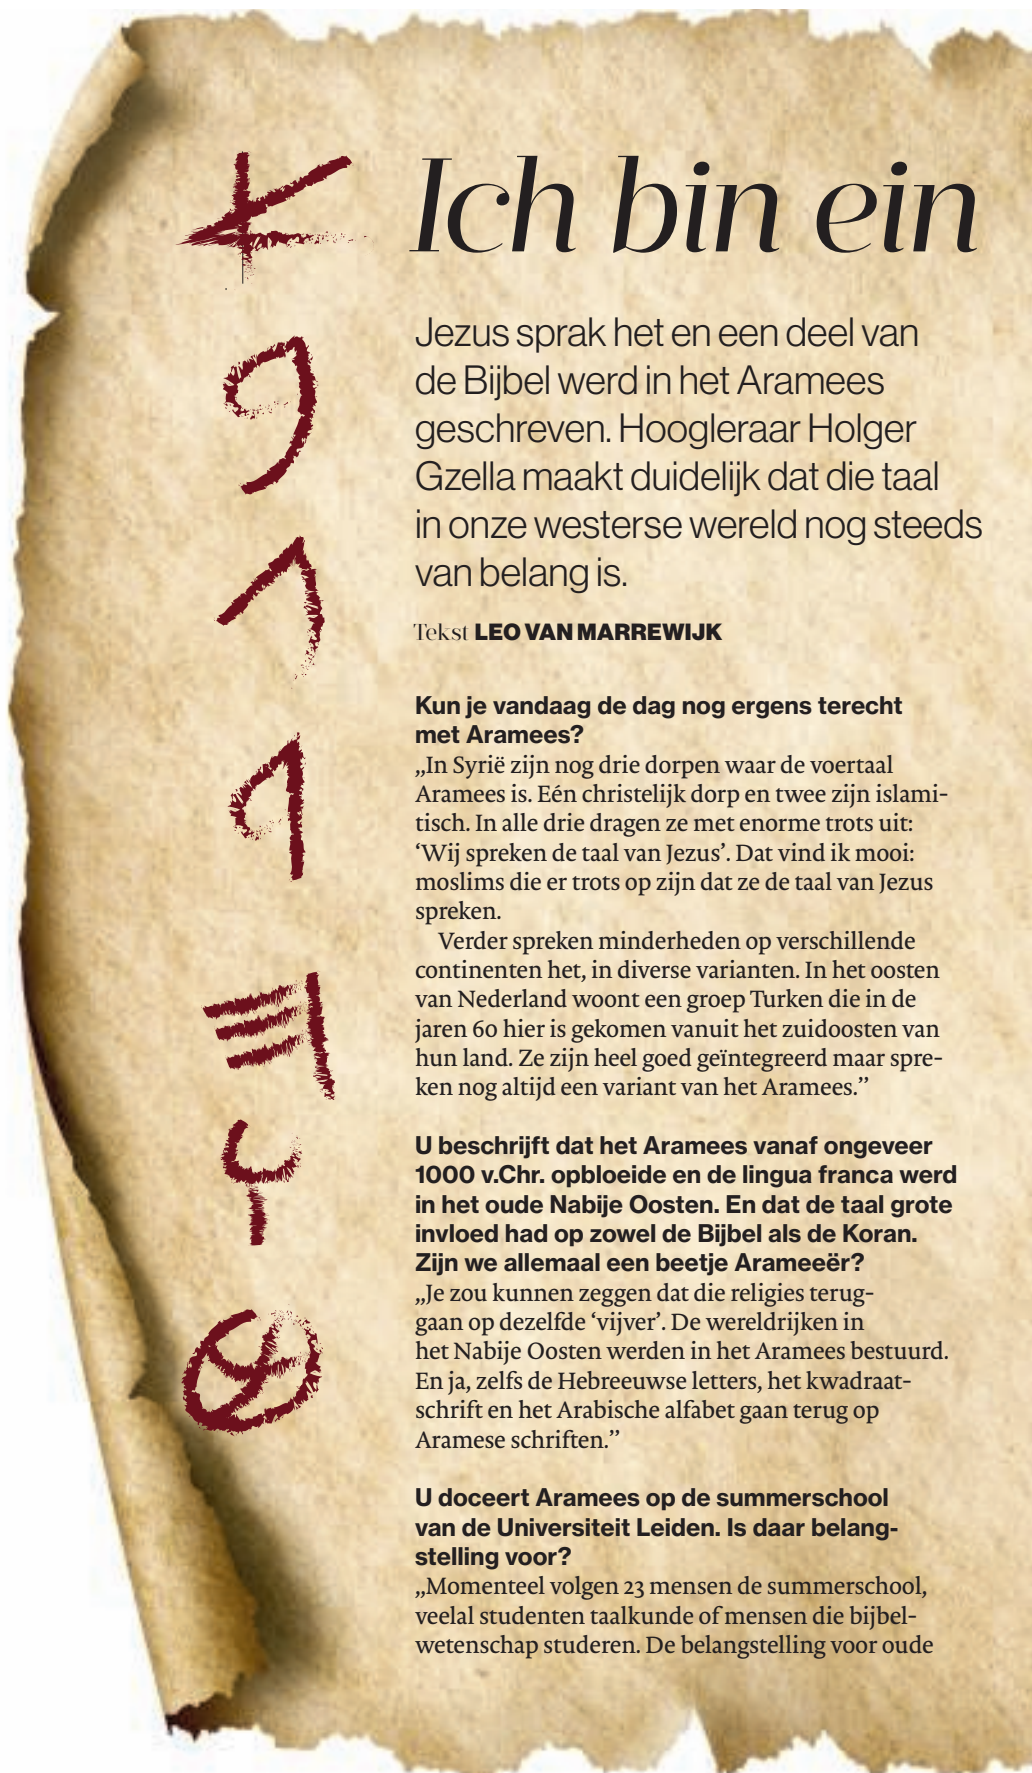 𐤀
𐤁
𐤂
𐤃
𐤄
𐤅
Ich bin ein
Jezus sprak het en een deel van
de Bijbel werd in het Aramees
geschreven. Hoogleraar Holger
Gzella maakt duidelijk dat die taal
in onze westerse wereld nog steeds
van belang is.
Tekst LEO VAN MARREWIJK
Kun je vandaag de dag nog ergens terecht
met Aramees?
„In Syrië zijn nog drie dorpen waar de voertaal
Aramees is. Eén christelijk dorp en twee zijn islami-
tisch. In alle drie dragen ze met enorme trots uit:
‘Wij spreken de taal van Jezus’. Dat vind ik mooi:
moslims die er trots op zijn dat ze de taal van Jezus
spreken.
Verder spreken minderheden op verschillende
continenten het, in diverse varianten. In het oosten
van Nederland woont een groep Turken die in de
jaren 60 hier is gekomen vanuit het zuidoosten van
hun land. Ze zijn heel goed geïntegreerd maar spre-
ken nog altijd een variant van het Aramees.”
U beschrijft dat het Aramees vanaf ongeveer
1000 v.Chr. opbloeide en de lingua franca werd
in het oude Nabije Oosten. En dat de taal grote
invloed had op zowel de Bijbel als de Koran.
Zijn we allemaal een beetje Arameeër?
„Je zou kunnen zeggen dat die religies terug-
gaan op dezelfde ‘vijver’. De wereldrijken in
het Nabije Oosten werden in het Aramees bestuurd.
En ja, zelfs de Hebreeuwse letters, het kwadraat-
schrift en het Arabische alfabet gaan terug op
Aramese schriften.”
U doceert Aramees op de summerschool
van de Universiteit Leiden. Is daar belang-
stelling voor?
„Momenteel volgen 23 mensen de summerschool,
veelal studenten taalkunde of mensen die bijbel-
wetenschap studeren. De belangstelling voor oude